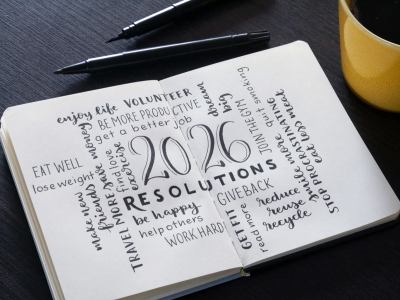 enjoy life
VOLUNTEER
BE MORE PRODUCTIVE
get a better job
dream
big
EAT WELL
lose weight
make new
friends
save money
find love
exercise
TRAVEL MORE
2026
RESOLUTIONS
be happy
help others
WORK HARD
quit smoking
JOIN THE GYM
make more
eat less meat
STOP PROCRASTINATING
GIVE BACK
GET FIT
read more
reduce
reuse
recycle